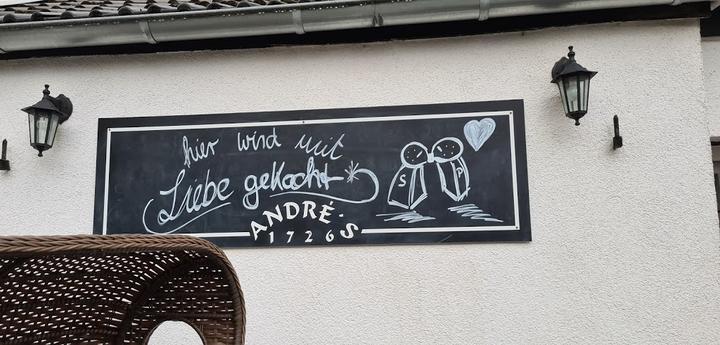 hier wird mit
Liebe gekocht
S P
ANDRÉ'S
1726